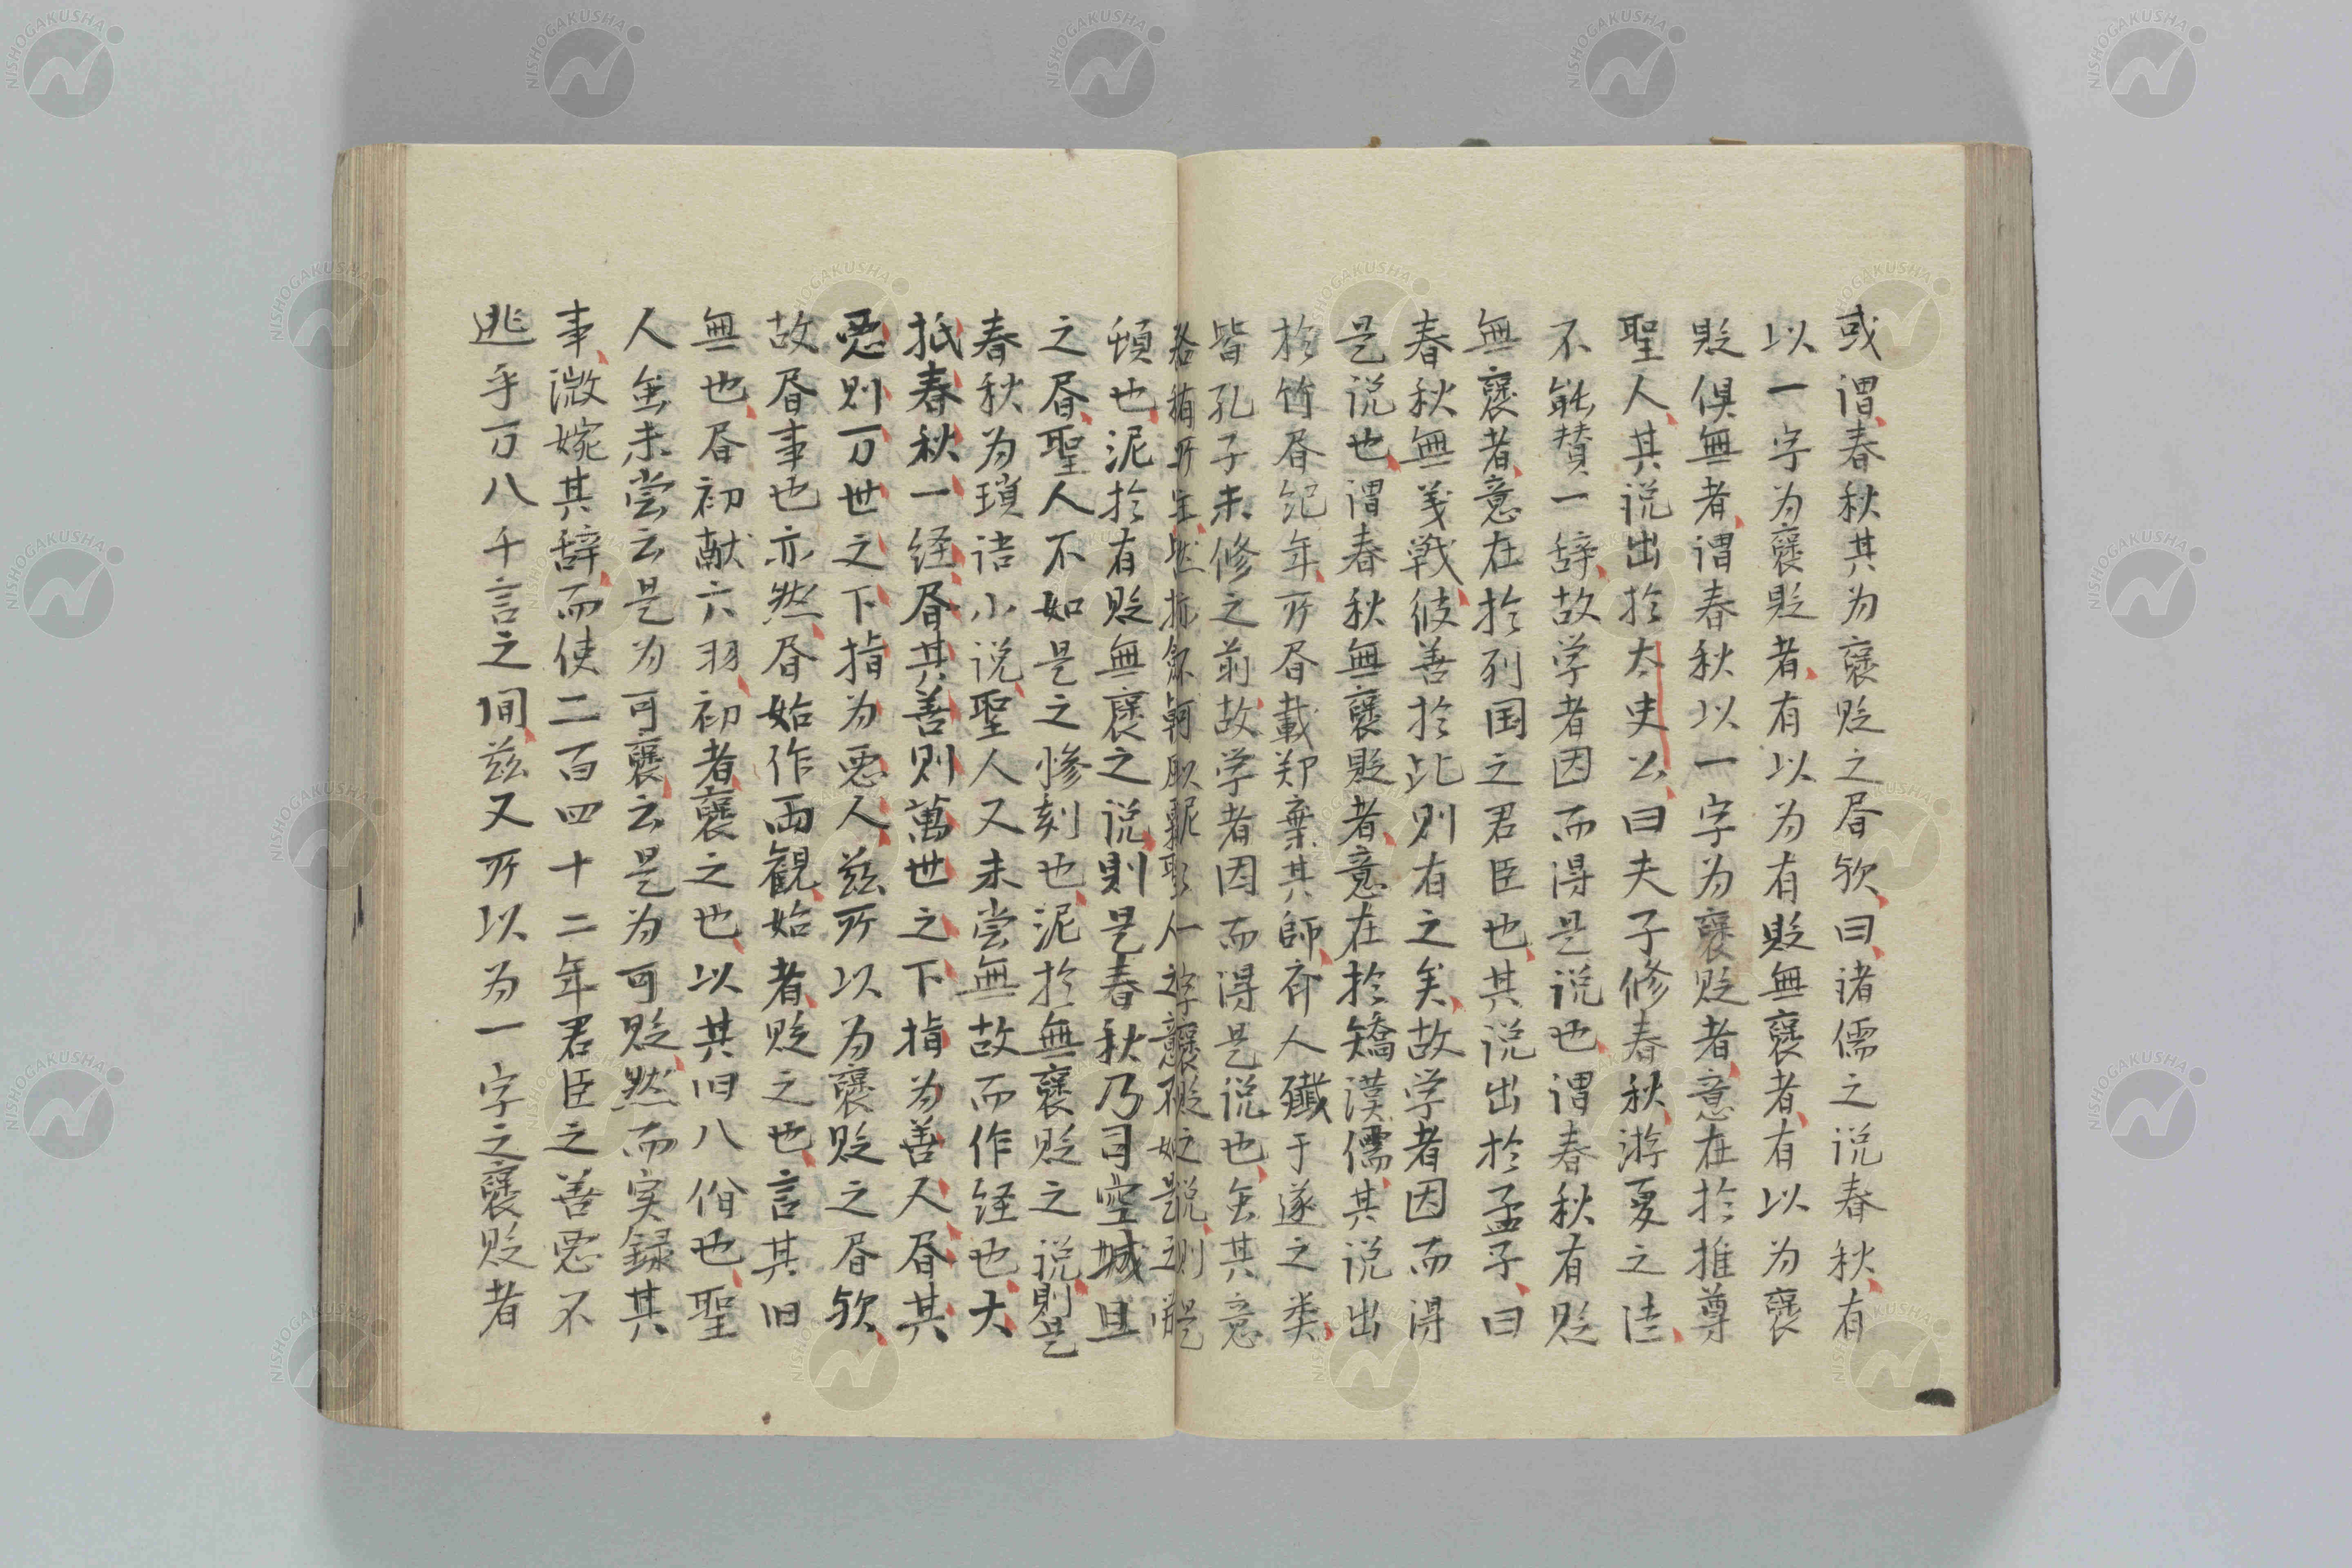 或謂春秋其為褒貶之昏欤曰諸儒之说春秋有
以一字为褒貶者有以为有貶無褒者有以为褒
貶俱無者謂春秋以一字为褒貶者意在於推尊
聖人其说出於太史公曰夫子修春秋游夏之徒
不能賛一辞故学者因而得是说也謂春秋有貶
無褒者意在於列国之君臣也其说出於孟子曰
春秋無義戦彼善於此則有之矣故学者因而得
是说也謂春秋無褒貶者意在於矯漢儒其说出
於竹昏紀年所昏載郑棄其師齐人殲于遂之类
皆孔子未修之前故学者因而得是说也虽其意
頑也泥於有貶無褒之说則是春秋乃司空城旦
之昏聖人不如是之惨刻也泥於無褒貶之说則是
春秋为瑣语小说聖人又未尝無故而作経也大
抵春秋一経昏其善則萬世之下指为善人昏其
悪則万世之下指为悪人兹所以为褒貶之昏欤
故昏事也亦然昏始作両観始者貶之也言其旧
無也昏初献六羽初者褒之也以其旧八佾也聖
人虽未尝云是为可褒云是为可貶然而実録其
事微婉其辞而使二百四十二年君臣之善悪不
逃乎万八千言之间兹又所以为一字之褒貶者
NISHOGAKUSHA